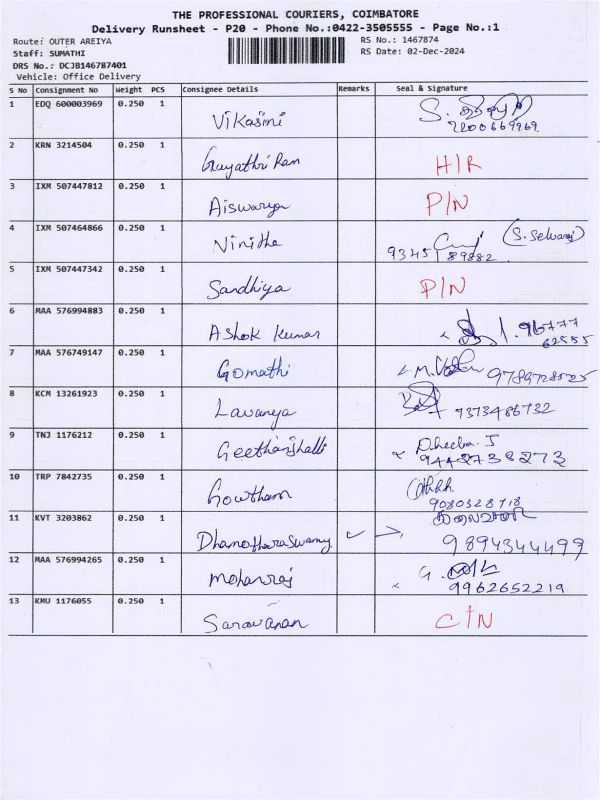 THE PROFESSIONAL COURIERS, COIMBATORE
Delivery Runsheet - P20 - Phone No.:0422-3505555 - Page No.:1
Route: OUTER AREIYA
Staff: SUMATHI
DRS No.: DCJB146787401
Vehicle: Office Delivery
RS No.: 1467874
RS Date: 02-Dec-2024
S No Consignment No Weight PCS Consignee Details Remarks Seal & Signature
1 EDQ 600003969 0.250 1 Vikasini
2 KRN 3214504 0.250 1 Gayathri Ram H/R
3 IXM 507447812 0.250 1 Aiswarya P/N
4 IXM 507464866 0.250 1 Vinitha (S. Selvaraj)
9345 89882
5 IXM 507447342 0.250 1 Sandhiya P/N
6 MAA 576994883 0.250 1 Ashok Kumar 96777
62555
7 MAA 576749147 0.250 1 Gomathi
8 KCM 13261923 0.250 1 Lavanya 7373486732
9 TNJ 1176212 0.250 1 Dheeba. J
9442738273
10 TRP 7842735 0.250 1 Gowtham
9080328718
11 KVT 3203862 0.250 1 Dhamotharaswamy
9894344499
12 MAA 576994265 0.250 1 Mohanraj
9962652219
13 KMU 1176055 0.250 1 Saravanan C/N